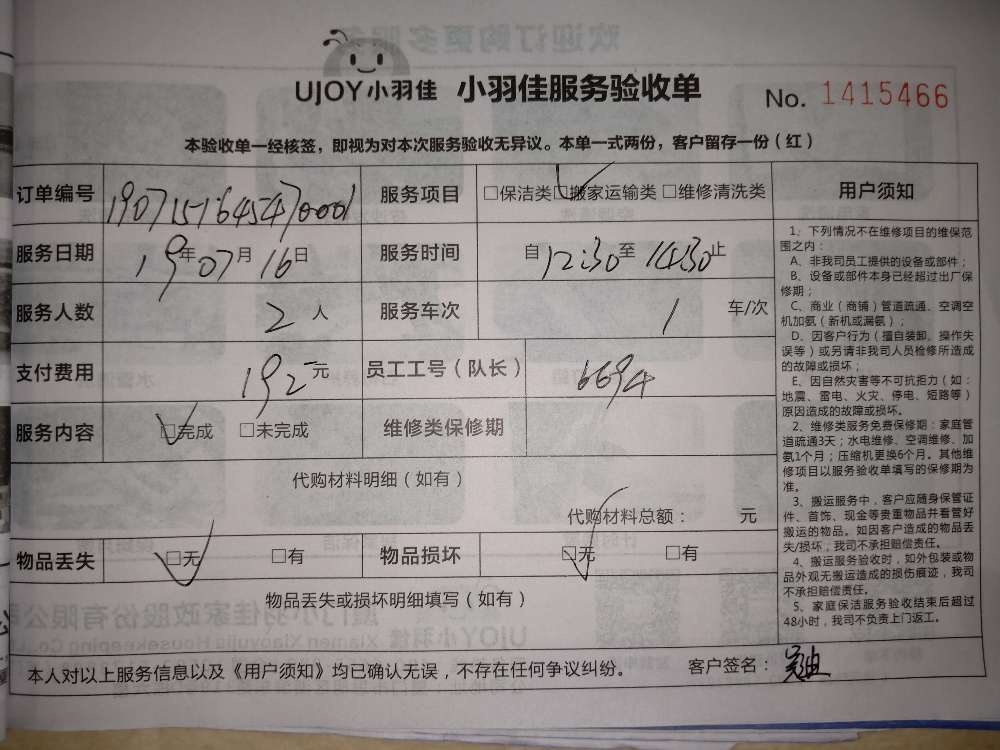 UJOY小羽佳 小羽佳服务验收单 No. 1415466
本验收单一经核签，即视为对本次服务验收无异议。本单一式两份，客户留存一份（红）
订单编号 1907151645470001 服务项目 □保洁类 □搬家运输类 □维修清洗类
服务日期 19年07月16日 服务时间 自12:30至14:30止
服务人数 2人 服务车次 1 车/次
支付费用 192元 员工工号（队长） 6694
服务内容 □完成 □未完成 维修类保修期
代购材料明细（如有）
代购材料总额： 元
物品丢失 □无 □有 物品损坏 □无 □有
物品丢失或损坏明细填写（如有）
用户须知
1、下列情况不在维修项目的维保范
围之内：
A、非我司员工提供的设备或部件；
B、设备或部件本身已经超过出厂保
修期；
C、商业（商铺）管道疏通、空调空
机加氨（新机或漏氨）；
D、因客户行为（擅自装卸、操作失
误等）或另请非我司人员检修所造成
的故障或损坏；
E、因自然灾害等不可抗拒力（如：
地震、雷电、火灾、停电、短路等）
原因造成的故障或损坏。
2、维修类服务免费保修期：家庭管
道疏通3天；水电维修、空调维修、加
氨1个月；压缩机更换6个月。其他维
修项目以服务验收单填写的保修期为
准。
3、搬运服务中，客户应随身保管证
件、首饰、现金等贵重物品并看管好
搬运的物品。如因客户造成的物品丢
失/损坏，我司不承担赔偿责任。
4、搬运服务验收时，如外包装或物
品外观无搬运造成的损伤痕迹，我司
不承担赔偿责任。
5、家庭保洁服务验收结束后超过
48小时，我司不负责上门返工。
本人对以上服务信息以及《用户须知》均已确认无误，不存在任何争议纠纷。 客户签名：